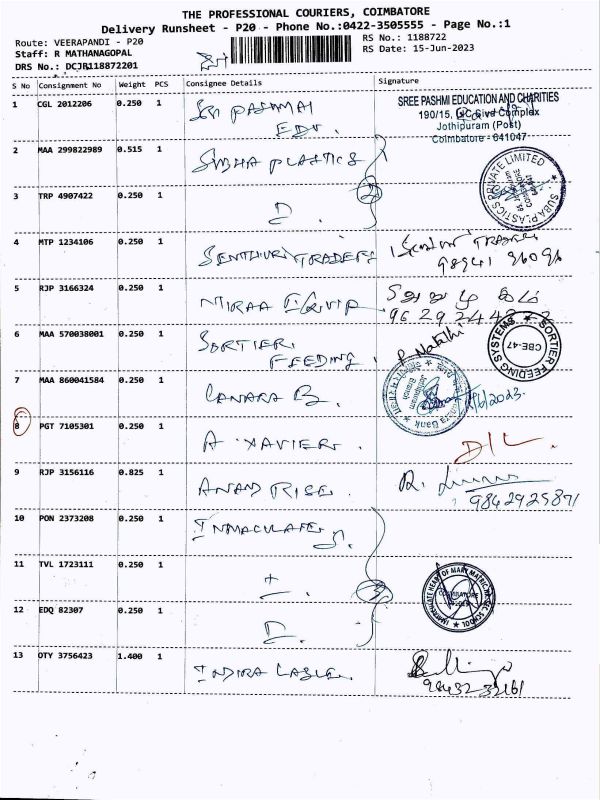 THE PROFESSIONAL COURIERS, COIMBATORE
Delivery Runsheet - P20 - Phone No.:0422-3505555 - Page No.:1
Route: VEERAPANDI - P20
RS No.: 1188722
Staff: R MATHANAGOPAL
RS Date: 15-Jun-2023
DRS No.: DCJR118872201
S No Consignment No Weight PCS Consignee Details Signature
1 CGL 2012206 0.250 1 SRI PASHMAI
EDU.
SREE PASHMI EDUCATION AND CHARITIES
190/15, Complex
Jothipuram (Post)
Coimbatore - 641047
2 MAA 299822989 0.515 1 SUBHA PLASTICS
SUBA PLASTICS PRIVATE LIMITED
3 TRP 4907422 0.250 1 D.
4 MTP 1234106 0.250 1 SENTHUR TRADERS
98941 96096
5 RJP 3166324 0.250 1 NIRAA
96292 44
6 MAA 570038001 0.250 1 SORTIER
FEEDING
SORTIER FEEDING SYSTEMS
CBE-47
7 MAA 860041584 0.250 1 CANARA B.
Canara Bank
Jothipuram
Branch
8 PGT 7105301 0.250 1 A XAVIER. D/L
9 RJP 3156116 0.825 1 ANAND RISE. R.
9842925871
10 PON 2373208 0.250 1 INMACULATE
11 TVL 1723111 0.250 1
IMMACULATE HEART OF MARY MATRIC HR. SEC. SCHOOL
COIMBATORE
12 EDQ 82307 0.250 1 D.
13 OTY 3756423 1.400 1 INDIRA CABLE.